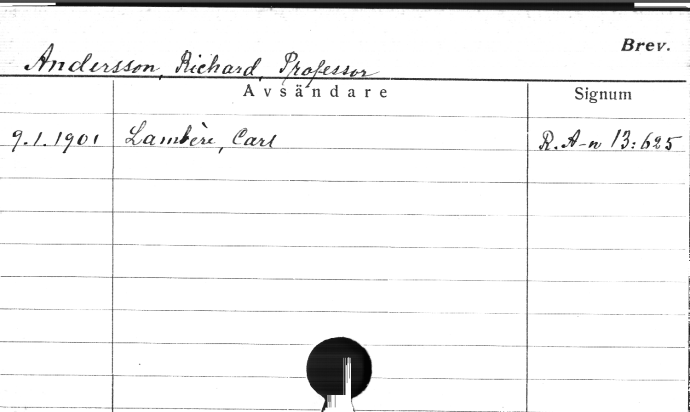 Brev.
Andersson, Richard, Professor
Avsändare Signum
9.1.1901 Lambère, Carl R. A-n 13:625